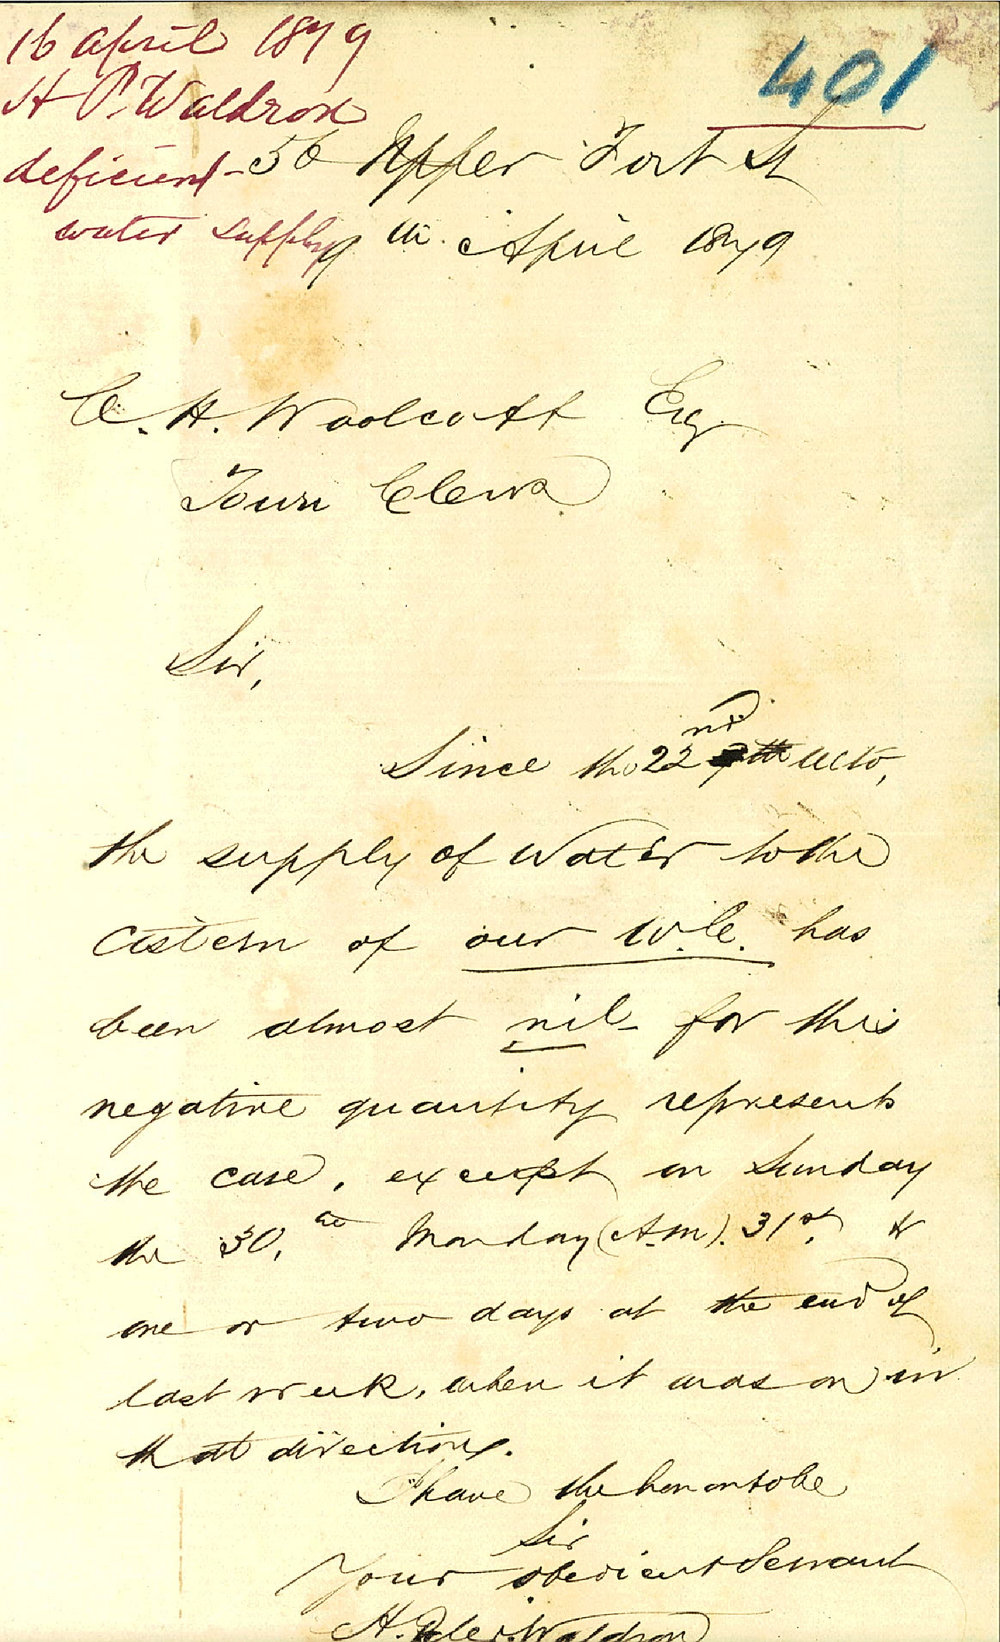 16 april 1879
H P. Waldron
deficient
water supply
401
56 Upper Fort St
9th April 1879
C. H. Woolcott Esq
Town Clerk
Sir,
Since the 22nd ulto,
the supply of Water to the
Cistern of our W.C. has
been almost nil - for this
negative quantity represents
the case, except on Sunday
the 30, Monday (A.M). 31st, &
one or two days at the end of
last week, when it was on in
that direction.
I have the honor to be
Sir
Your obedient Servant
H. Waldron